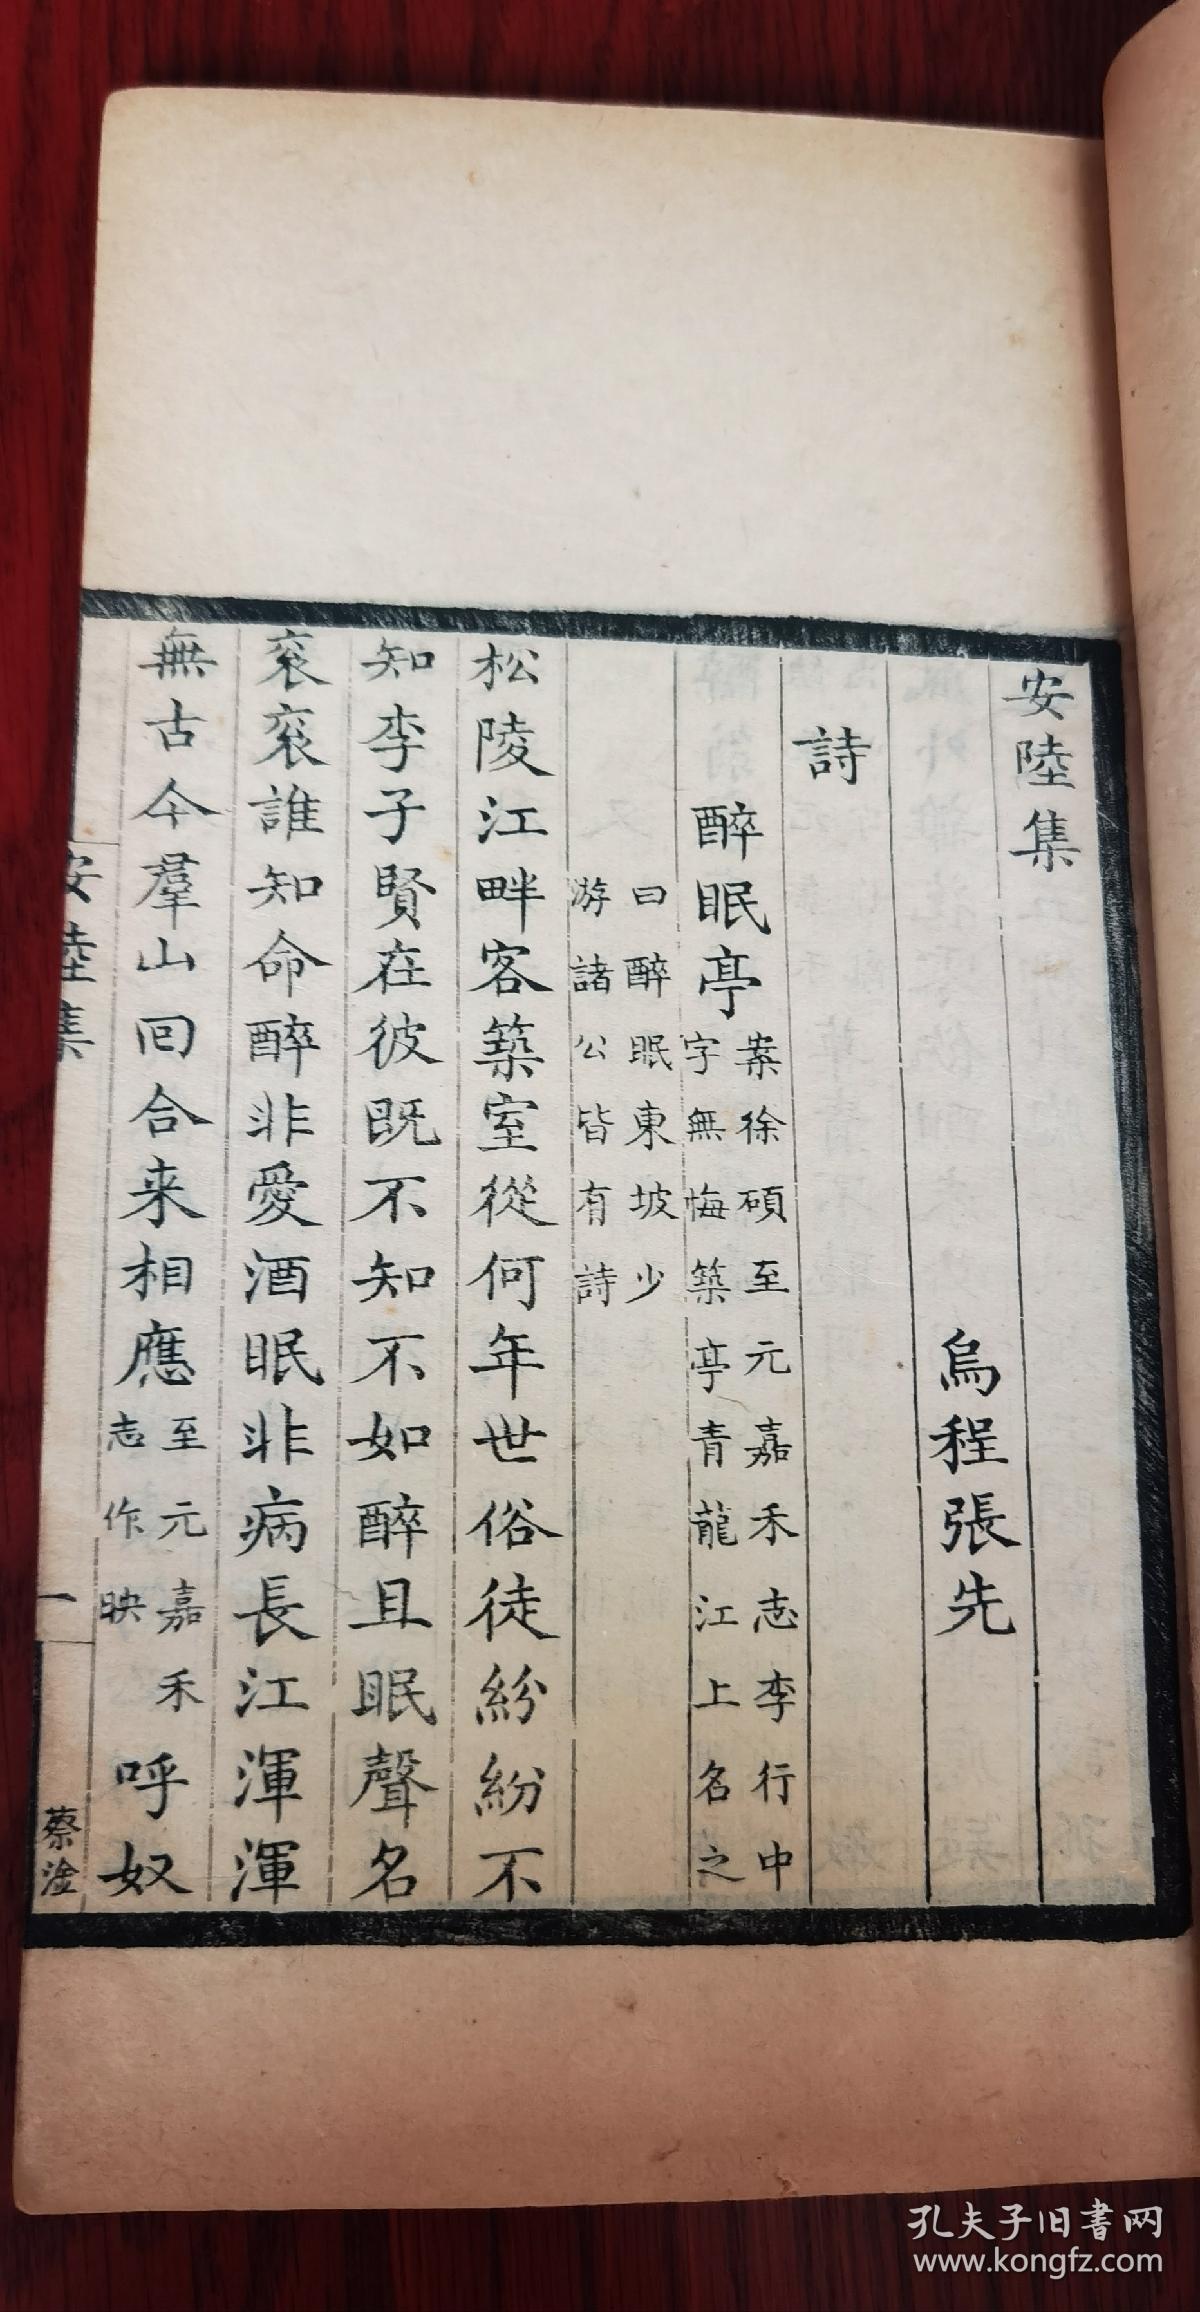 安陸集
烏程張先
詩
醉眠亭案徐碩至元嘉禾志李行中字無悔築亭青龍江上名之
曰醉眠東坡少游諸公皆有詩
松陵江畔客築室從何年世俗徒紛紛不
知李子賢在彼既不知不如醉且眠聲名
衮衮誰知命醉非愛酒眠非病長江渾渾
無古今羣山回合来相應至元嘉禾志作映呼奴
安陸集
一
蔡淦
孔夫子旧書网
www.kongfz.com